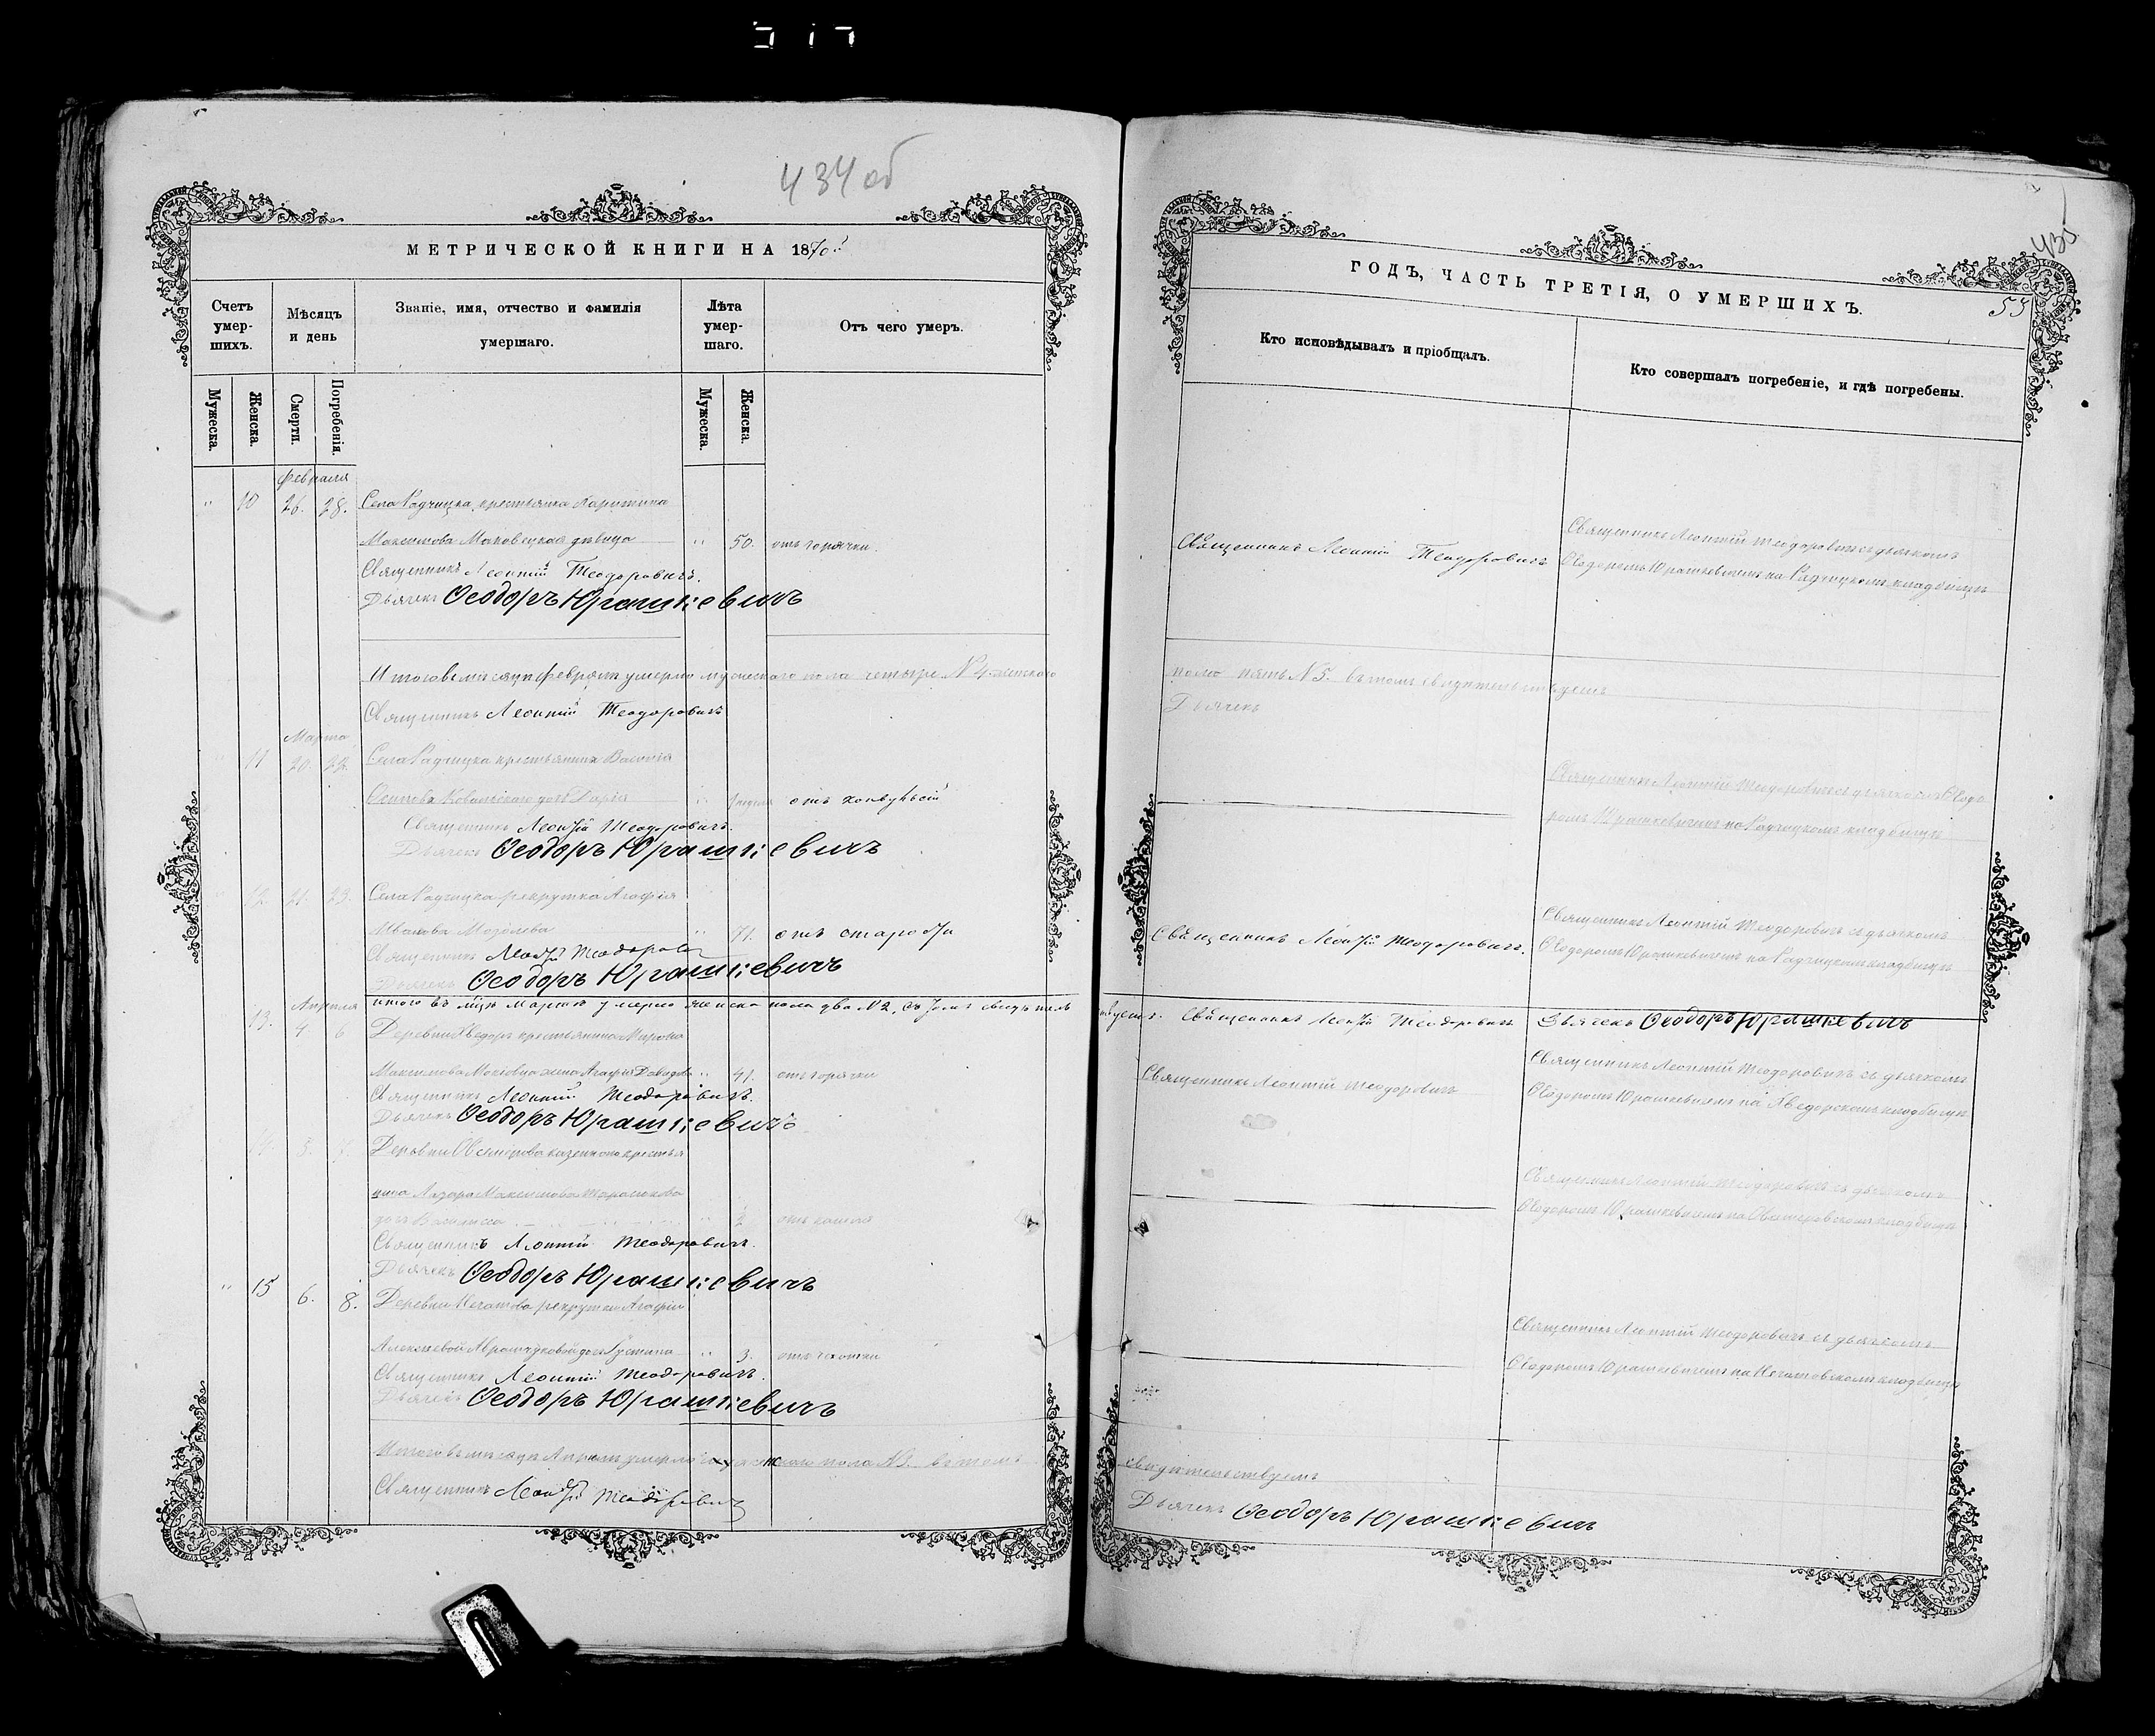 434 об
МЕТРИЧЕСКОЙ КНИГИ НА 1870 г.
Счетъ умер-шихъ.
Мѣсяцъ и день
Званіе, имя, отчество и фамилія умершаго.
Лѣта умер-шаго.
Отъ чего умеръ.
Мужеска.
Женска.
Смерти.
Погребенія.
Мужеска.
Женска.
Февраля
" 10 26. 28. Села Радчицка, крестьянка
Максимова Маковецкая дѣвица " 50. отъ горячки.
Священникъ Леонтій Теодоровичъ.
Дьячекъ Ѳеодоръ Юрашкевичъ
Итого въ мѣсяцѣ Февралѣ умерло мужескаго пола четыре N 4 женскаго
Священникъ Леонтій Теодоровичъ
Марта
11 20. 22. Села Радчицка крестьянина
дочь Дарія отъ конвульсій
Священникъ Леонтій Теодоровичъ.
Дьячекъ Ѳеодоръ Юрашкевичъ
12 21. 23. Села Радчицка рекрутка Агафія
Иванова " 71. отъ старости
Священникъ Леонтій Теодорови
Дьячекъ Ѳеодоръ Юрашкевичъ
итого въ мцѣ Мартѣ умерло женска пола два N 2, въ томъ свидѣтель
Апрѣля
13. 4 6 Деревни Хведоръ крестьянина
Максимова жена Агафія " 41. отъ горячки
Священникъ Леонтій Теодоровичъ.
Дьячекъ Ѳеодоръ Юрашкевичъ
5. Деревни крестья
нина Лазаря Максимова
дочь " 2 отъ кашля
Священникъ Леонтій Теодоровичъ.
Дьячекъ Ѳеодоръ Юрашкевичъ
" 15 6. 8. Деревни рекрутки Агафіи
Алексѣевой дочь " 3. отъ чахотки
Священникъ Леонтій Теодоровичъ.
Дьячекъ Ѳеодоръ Юрашкевичъ
Итого въ мѣсяцѣ Апрѣлѣ умерло женскаго пола N 3. въ томъ
Священникъ Леонтій Теодоровичъ
435
55
ГОДЪ, ЧАСТЬ ТРЕТІЯ, О УМЕРШИХЪ.
Кто исповѣдывалъ и пріобщалъ.
Кто совершалъ погребеніе, и гдѣ погребены.
Священникъ Леонтій Теодоровичъ
Священникъ Леонтій Теодоровичъ съ дьячкомъ
Ѳеодоромъ Юрашкевичемъ на Радчицкомъ кладбищѣ
пола пять N 5. въ томъ свидѣтельствуемъ
Дьячекъ
Священникъ Леонтій Теодоровичъ съ дьячкомъ Ѳеодо
ромъ Юрашкевичемъ на Радчицкомъ кладбищѣ
Священникъ Леонтій Теодоровичъ.
Священникъ Леонтій Теодоровичъ съ дьячкомъ
Ѳеодоромъ Юрашкевичемъ на Радчицкомъ кладбищѣ
ствуемъ. Священникъ Леонтій Теодоровичъ Дьячекъ Ѳеодоръ Юрашкевичъ
Священникъ Леонтій Теодоровичъ
Священникъ Леонтій Теодоровичъ съ дьячкомъ
Ѳеодоромъ Юрашкевичемъ на Хведорскомъ кладбищѣ
Священникъ Леонтій Теодоровичъ съ дьячкомъ
Ѳеодоромъ Юрашкевичемъ на кладбищѣ
Священникъ Леонтій Теодоровичъ съ дьячкомъ
Ѳеодоромъ Юрашкевичемъ на кладбищѣ
свидѣтельствуемъ
Дьячекъ Ѳеодоръ Юрашкевичъ